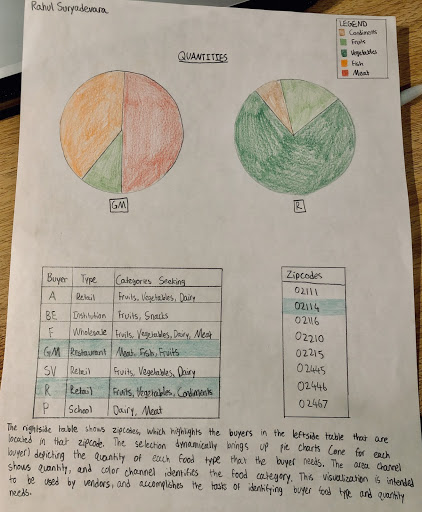 Rahul Suryadevara
LEGEND
Condiments
Fruits
Vegetables
Fish
Meat
QUANTITIES
GM
R
Buyer Type Categories Seeking
A Retail Fruits, Vegetables, Dairy
BE Institution Fruits, Snacks
F Wholesale Fruits, Vegetables, Dairy, Meat
GM Restaurant Meat, Fish, Fruits
SV Retail Fruits, Vegetables, Dairy
R Retail Fruits, Vegetables, Condiments
P School Dairy, Meat
Zipcodes
02111
02114
02116
02210
02215
02445
02446
02467
The rightside table shows zipcodes, which highlights the buyers in the leftside table that are
located in that zipcode. The selection dynamically brings up pie charts (one for each
buyer) depicting the quantity of each food type that the buyer needs. The area channel
shows quantity, and color channel identifies the food category. This visualization is intended
to be used by vendors, and accomplishes the tasks of identifying buyer food type and quantity
needs.